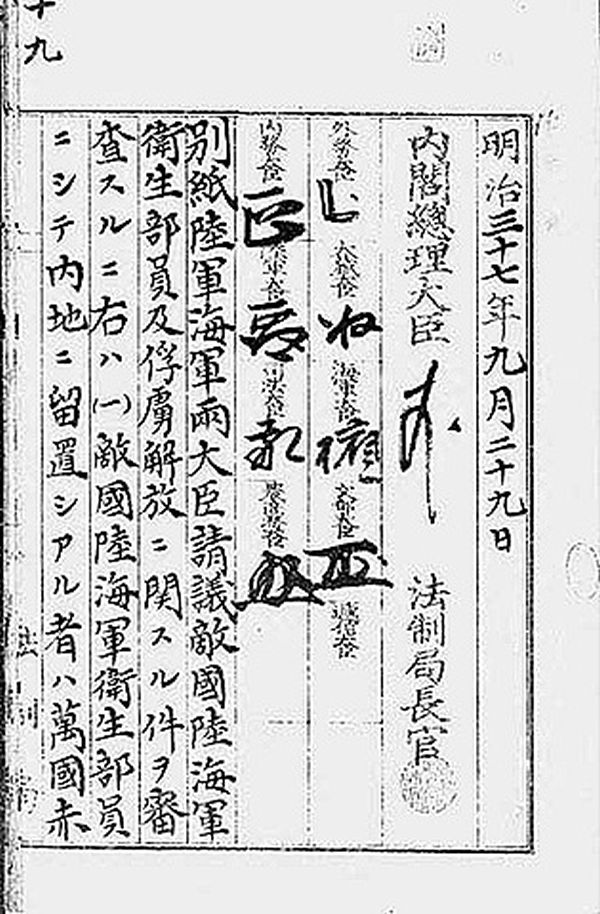 十九
明治三十七年九月二十九日
内閣總理大臣 法制局長官
外務大臣 大蔵大臣 海軍大臣 文部大臣 逓信大臣
内務大臣 陸軍大臣 司法大臣 農商務大臣
別紙陸軍海軍両大臣請議敵國陸海軍
衛生部員及俘虜解放ニ関スル件ヲ審
査スルニ右ハ(一)敵國陸海軍衛生部員
ニシテ内地ニ留置シアル者ハ萬國赤
法制局